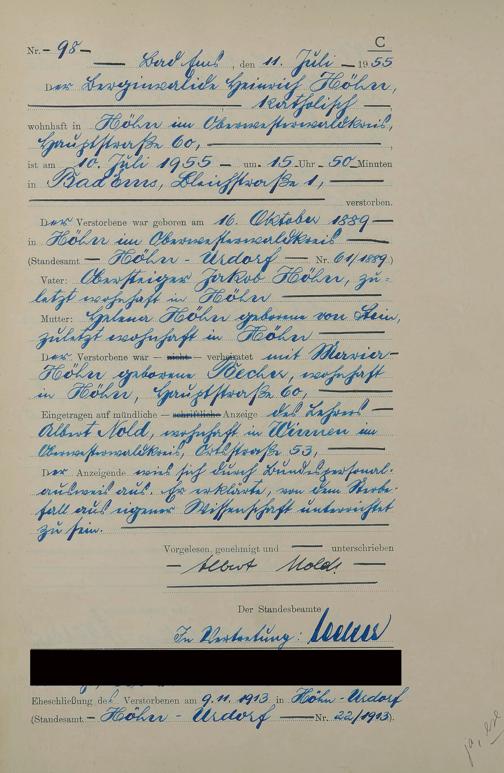 C
Nr. - 98 -
Bad Ems, den 11. Juli 1955
Der Berginvalide Heinrich Höhn,
katholisch
wohnhaft in Höhn im Oberwesterwaldkreis,
Hauptstraße 60,
ist am 10. Juli 1955 - um 15 Uhr 50 Minuten
in Bad Ems, Bleichstraße 1,
verstorben.
Der Verstorbene war geboren am 16. Oktober 1889
in Höhn im Oberwesterwaldkreis
(Standesamt - Höhn - Urdorf Nr. 61/1889.)
Vater: Obersteiger Jakob Höhn, zu-
letzt wohnhaft in Höhn
Mutter: Helena Höhn geborene von Stein,
zuletzt wohnhaft in Höhn
Der Verstorbene war - nicht - verheiratet mit Maria
Höhn geborene Becher, wohnhaft
in Höhn, Hauptstraße 60,
Eingetragen auf mündliche - schriftliche Anzeige des Lehrers
Albert Nold, wohnhaft in Winnen im
Oberwesterwaldkreis, Ortsstraße 53,
Der Anzeigende wies sich durch Bundespersonal-
ausweis aus. Er erklärte, von dem Sterbe-
fall aus eigener Wissenschaft unterrichtet
zu sein.
Vorgelesen, genehmigt und unterschrieben
Albert Nold.
Der Standesbeamte
In Vertretung:
Eheschließung des Verstorbenen am 9.11.1913 in Höhn-Urdorf
(Standesamt - Höhn - Urdorf Nr. 22/1913).